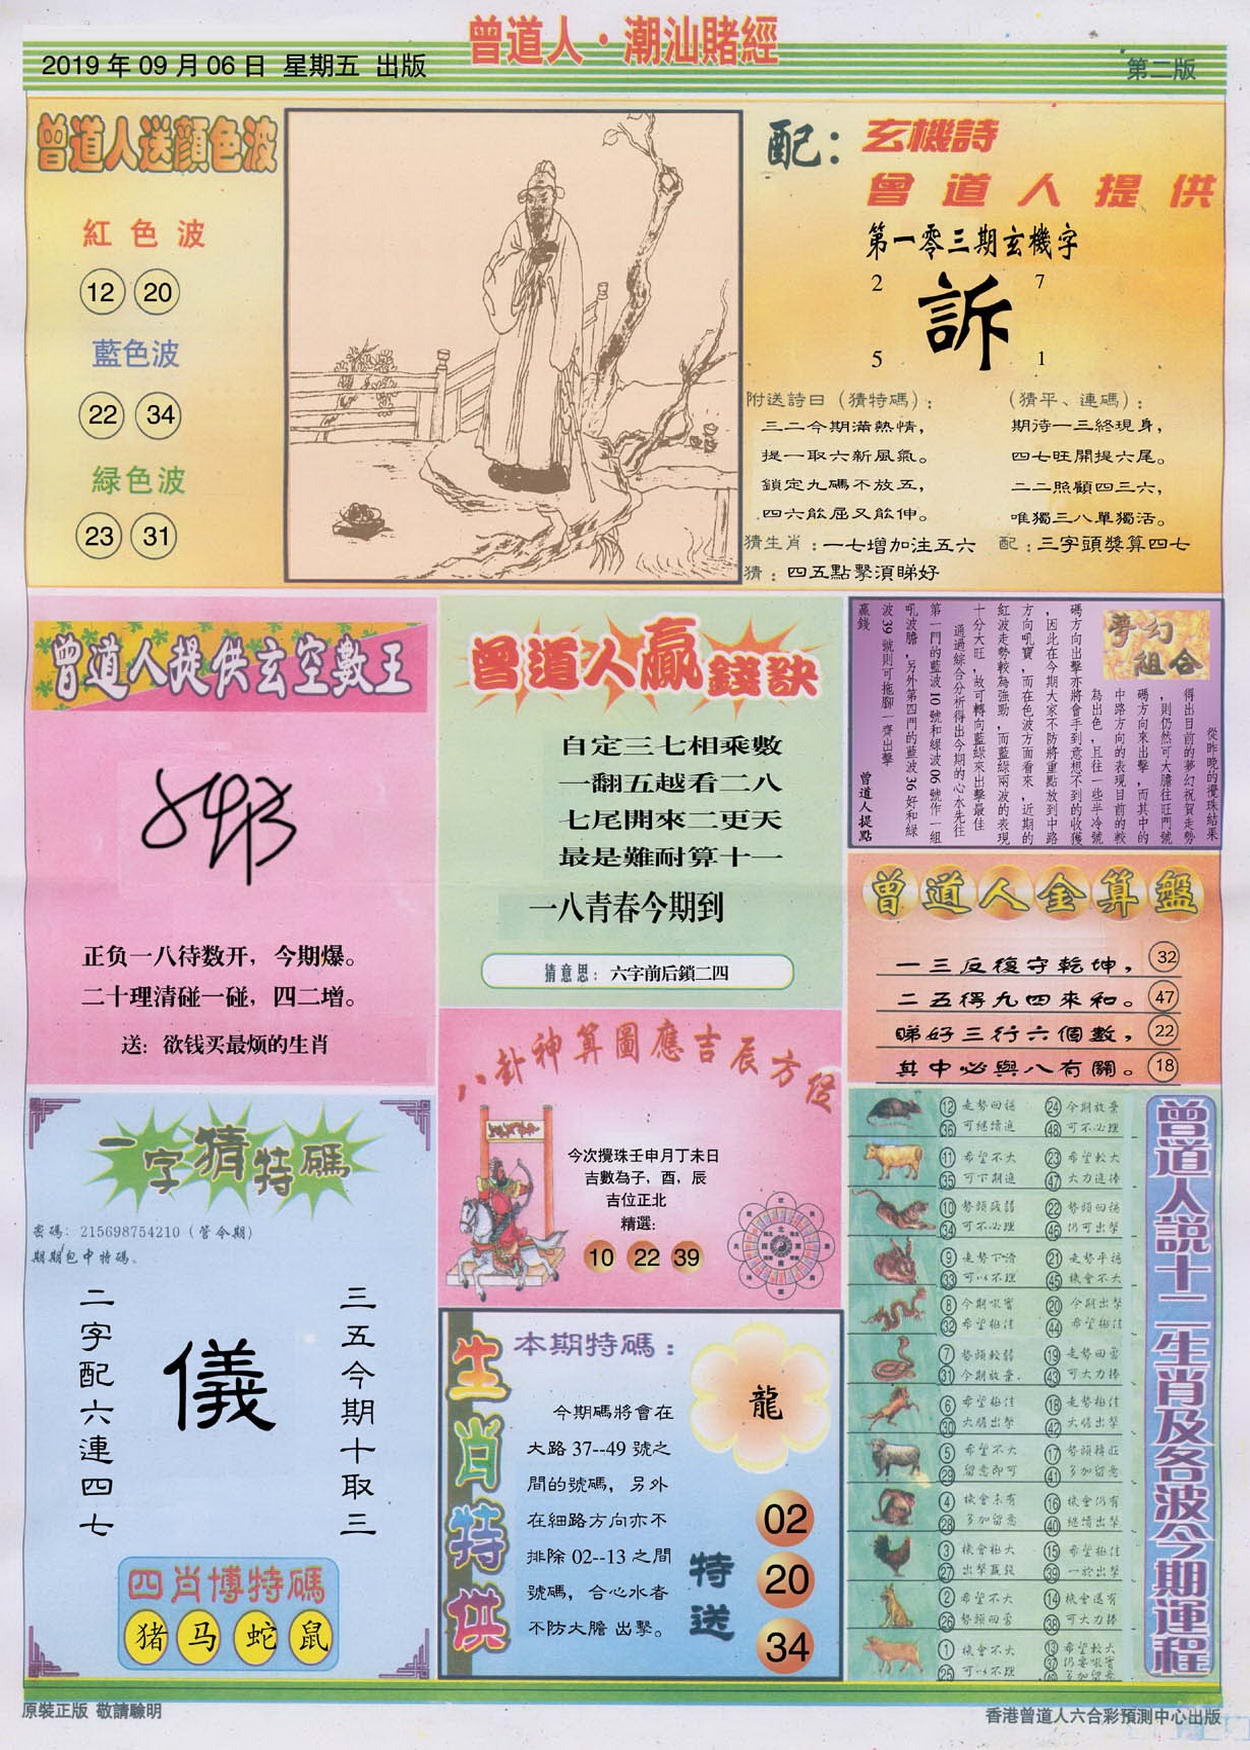 曾道人·潮汕賭經
2019年09月06日 星期五 出版
第二版
曾道人送顏色波
紅色波
12 20
藍色波
22 34
緑色波
23 31
配：玄機詩
曾道人提供
第一零三期玄機字
2 7
訴
5 1
附送詩曰（猜特碼）：
三二今期滿熱情，
提一取六新風氣。
鎖定九碼不放五，
四六能屈又能伸。
（猜平、連碼）：
期待一三終現身，
四七旺開提六尾。
二二照顧四三六，
唯獨三八單獨活。
猜生肖：一七增加注五六 配：三字頭獎算四七
猜：四五點擊須睇好
曾道人提供玄空數王
正负一八待数开，今期爆。
二十理清碰一碰，四二增。
送：欲钱买最烦的生肖
曾道人贏錢訣
自定三七相乘數
一翻五越看二八
七尾開來二更天
最是難耐算十一
一八青春今期到
猜意思：六字前后鎖二四
夢幻
組合
從昨晚的攪珠結果
得出目前的夢幻祝賀走勢
，則仍然可大膽往旺門號
碼方向來出擊，而其中的
中路方向的表現目前的較
為出色，且往一些半冷號
碼方向出擊亦將會手到意想不到的收獲
，因此在今期大家不防將重點放到中路
方向吼寶，而在色波方面看來，近期的
紅波走勢較為強勁，而藍綠兩波的表現
十分大旺，故可轉向藍綠來出擊最佳
通過綜合分析得出今期的心水先往
第一門的藍波10號和綠波06號作一組
吼波膽，另外第四門的藍波36好和綠
波39號則可拖腳一齊出擊
贏錢
曾道人提點
曾道人金算盤
一三反復守乾坤，32
二五得九四來和。47
睇好三行六個數，22
其中必與八有關。18
八卦神算圖應吉辰方位
今次攪珠壬申月丁未日
吉數為子，酉，辰
吉位正北
精選：
10 22 39
一字猜特碼
密碼：215698754210（管今期）
期期包中特碼。
三五今期十取三
儀
二字配六連四七
四肖博特碼
猪 马 蛇 鼠
生肖特供
本期特碼：
龍
今期碼將會在
大路37--49號之
間的號碼，另外
在細路方向亦不
排除02--13之間
號碼，合心水者
不防大膽出擊。
特送
02
20
34
曾道人説十二生肖及各波今期運程
12 走勢回穩 24 今期放棄
36 可繼續追 48 可不必理
11 希望不大 23 希望較大
35 可下期追 47 大力追捧
10 勢頭減弱 22 勢頭回穩
34 可不必理 46 仍可出擊
9 走勢下滑 21 走勢平穩
33 可以不理 45 機會不大
8 今期吼寶 20 今期出擊
32 希望極佳 44 希望極佳
7 勢頭較弱 19 走勢回雲
31 今期放棄. 43 可大力捧
6 希望極佳 18 走勢極佳
30 大膽出擊 42 大膽出擊
5 希望不大 17 勢頭轉旺
29 留意即可 41 多加留意
4 機會未有 16 機會仍有
28 多加留意 40 繼續出擊
3 機會極大 15 希望極佳
27 出擊贏錢 39 一於出擊
2 希望不大 14 機會還有
26 勢頭回雲 38 可大力捧
1 機會不大 13 希望較大
25 可以不理 37 仍要吼寶
49 多加留意
原裝正版 敬請驗明
香港曾道人六合彩預測中心出版